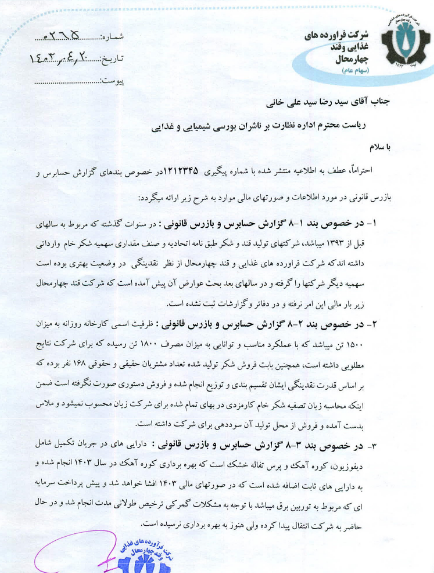 شرکت فراورده های
غذایی وقند
چهارمحال
(سهامی عام)
شماره: ۰۲۶۵
تاریخ: ۱۴۰۳،۶،۲۰
پیوست:
جناب آقای سید رضا سید علی خانی
ریاست محترم اداره نظارت بر ناشران بورسی شیمیایی و غذایی
با سلام
احتراماً، عطف به اطلاعیه منتشر شده با شماره پیگیری ۱۲۱۲۳۴۵در خصوص بندهای گزارش حسابرس و
بازرس قانونی در مورد اطلاعات و صورتهای مالی موارد به شرح زیر ارائه میگردد:
۱- در خصوص بند ۱-۸ گزارش حسابرس و بازرس قانونی : در سنوات گذشته که مربوط به سالهای
قبل از ۱۳۹۳ میباشد، شرکتهای تولید قند و شکر طبق نامه اتحادیه و صنف مقداری سهمیه شکر خام وارداتی
داشته اندکه شرکت فراورده های غذایی و قند چهارمحال از نظر نقدینگی در وضعیت بهتری بوده است
سهمیه دیگر شرکتها را گرفته و در سالهای بعد بحث عوارض آن پیش آمده است که شرکت قند چهارمحال
زیر بار مالی این امر نرفته و در دفاتر وگزارشات ثبت نشده است.
۲- در خصوص بند ۲-۸ گزارش حسابرس و بازرس قانونی : ظرفیت اسمی کارخانه روزانه به میزان
۱۵۰۰ تن میباشد که با عملکرد مناسب و توانایی به میزان مصرف ۱۸۰۰ تن رسیده که برای شرکت نتایج
مطلوبی داشته است، همچنین بابت فروش شکر تولید شده تعداد مشتریان حقیقی و حقوقی ۱۶۸ نفر بوده که
بر اساس قدرت نقدینگی ایشان تقسیم بندی و توزیع انجام شده و فروش دستوری صورت نگرفته است ضمن
اینکه محاسبه زیان تصفیه شکر خام کارمزدی در بهای تمام شده برای شرکت زیان محسوب نمیشود و ملاس
بدست آمده و فروش از محل تولید آن سوددهی برای شرکت داشته است.
۳- در خصوص بند ۳-۸ گزارش حسابرس و بازرس قانونی : دارایی های در جریان تکمیل شامل
دیفوزیون، کوره آهک و پرس تفاله خشک است که بهره برداری کوره آهک در سال ۱۴۰۳ انجام شده و
به دارایی های ثابت اضافه شده است که در صورتهای مالی ۱۴۰۳ افشا خواهد شد و پیش پرداخت سرمایه
ای که مربوط به توربین برق میباشد با توجه به مشکلات گمرکی ترخیص طولانی مدت انجام شد و در حال
حاضر به شرکت انتقال پیدا کرده ولی هنوز به بهره برداری نرسیده است.
شرکت فرآورده های غذایی
وقند چهارمحال